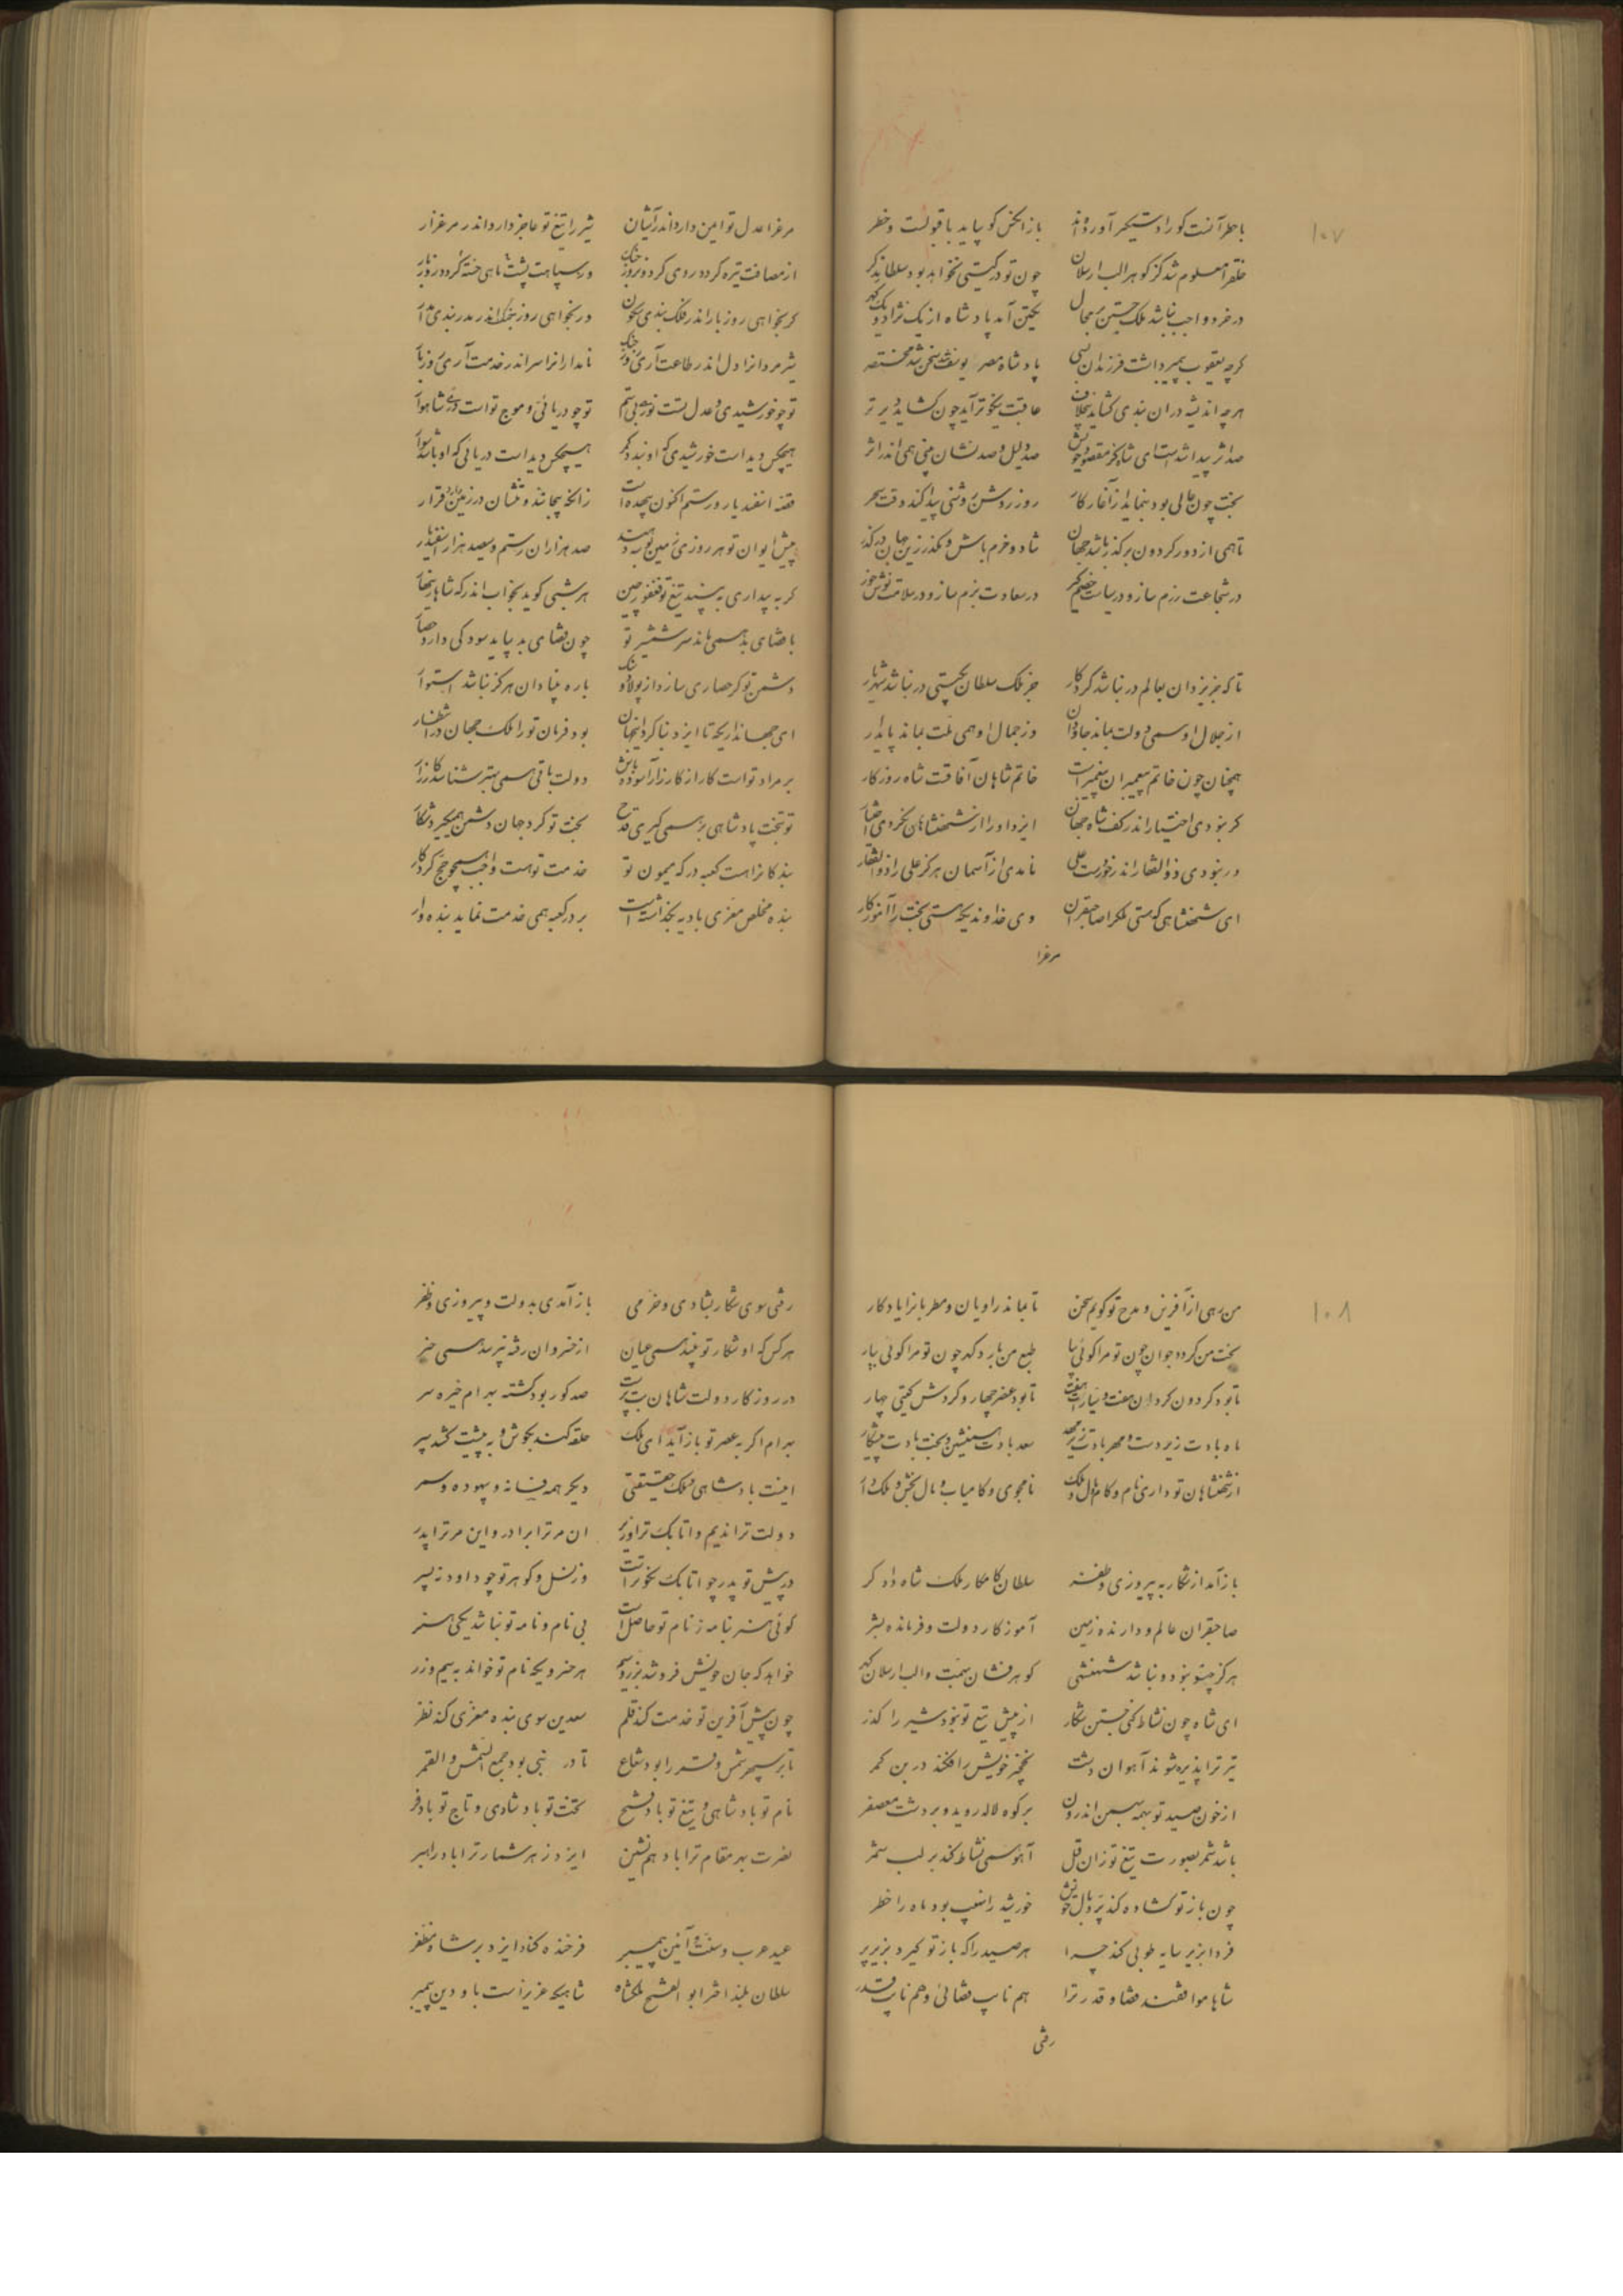 ۱۰۷
باز انکس کو پاید با قبولست و خطر
خلق را معلوم شد کز کوهر الب ارسلان چون تو در کیتی نخواهد بود سلطان دکر
در خرد واجب نباشد ملک جستن بر محال
کرچه یعقوب پیمبر داشت فرزندان بسی پادشاه مصر یوسف شد سخن شد مختصر
هر چه اندیشه در ان بندی کشاید عاقبت نیکوتر آید چون کشاید دیرتر
صد دلیل و صد نشان بینی همی اندر اثر
بخت چون عالی بود بنماید از آغاز کار روز روشن روشنی پیدا کند وقت سحر
تا همی از دور کردون بر کذر باشد جهان شاد و خرم باش و مکذر زین جهان در کذر
در شجاعت رزم ساز و در سعادت بزم ساز و در سلامت نوش خور
تا که جز یزدان بعالم در نباشد کردکار جز ملک سلطان بکیتی در نباشد شهریار
از جلال او همی دولت بماند جاودان وز جمال او همی ملت بماند پایدار
همچنان چون خاتم پیغمبران پیغمبر است خاتم شاهان آفاقست شاه روزکار
کر نبودی اختیار اندر کف شاه جهان ایزد او را از شهنشاهان نکردی اختیار
ور نبودی ذوالفقار اندر خور دست علی نامدی از آسمان هرکز علی را ذوالفقار
ای شهنشاهی که هستی ملک را صاحبقران وی خداوندیکه هستی بخت را آموزکار
مرغرا
مرغرا عدل تو امن دارد اندر آشیان شیر را تیغ تو عاجز دارد اندر مرغزار
از مصافت تیره کردد روی کردون روز جنک وز سپاهت پشت ماهی خسته کردد روز بار
کر بخواهی روز بار اندر فلک بندی سکون ور بخواهی روز جنک اندر مدر بندی مدار
شیر مردانرا دل اندر طاعت آری روز جنک نامدارانرا سر اندر خدمت آری روز بار
تو چو خورشیدی و عدل تست نور بی ستم تو چو دریائی و موج تو است در شاهوار
هیچکس دیداست خورشیدی که او بندد کمر هیچکس دیداست دریائی که او باشد سوار
قصه اسفندیار و رستم اکنون
پیش ایوان تو هر روزی زمین بوسد صد هزاران رستم و سیصد هزار اسفندیار
کر به بیداری به بیند تیغ تو فغفور چین هر شبی کوید بخواب اندر که شاها زینهار
با قضای بد همی ماند سر شمشیر تو چون قضای بد بیاید سود کی دارد حصار
دشمن تو کر حصاری سازد از پولاد و سنک باره بنیاد ان هرکز نباشد استوار
ای جهانداریکه تا ایزد بنا کرد این جهان بود فرمان تو را ملک جهان در انتظار
بر مراد تو است کار از کارزار آسوده باش دولت باقی همی بهتر شناسد کارزار
تو بتخت پادشاهی بر همی کیری قدح بخت تو کرد جهان دشمن همیکیرد شکار
بندکانرا هست کعبه درکه میمون تو خدمت تو هست واجب همچو حج کردکار
بنده مخلص معزی بادیه بکذاشته است بر در کعبه همی خدمت نماید بنده وار
۱۰۸
من رهی از آفرین و مدح تو کویم سخن تا بماند راویان و مطربانرا یادکار
بخت من کردد جوان چون تو مرا کوئی بیا طبع من بارد کهر چون تو مرا کوئی بیار
تا بود کردون کردان هفت و سیارات هفت تا بود عنصر چهار و کردش کیتی چهار
ماه بادت زیر دست و مهر بادت زیر مهر سعد بادت همنشین و بخت بادت پیشکار
از شهنشاهان تو داری نام و کام و مال و ملک نامجوی و کامیاب و مال بخش و ملک دار
باز آمد از شکار به پیروزی و ظفر سلطان کامکار ملک شاه دادکر
صاحبقران عالم و دارنده زمین آموزکار دولت و فرمانده بشر
هرکز چنو نبود و نباشد شهنشهی کوهر فشان بهمت و الب ارسلان کهر
ای شاه چون نشاط کنی جستن شکار از پیش تیغ تو نبود شیر را کذر
تیر ترا پذیره شوند آهوان دشت نخچیر خویش را فکند در بن کمر
از خون صید تو بهمه بهمن اندرون بر کوه لاله روید و بر دشت معصفر
باشد شمر بصورت تیغ تو زان قبل آهو همی نشاط کند بر لب شمر
چون باز تو کشاده کند پر و بال خویش خورشید را نهیب بود ماه را خطر
فردا بزیر سایه طوبی کند چرا هر صید را که باز تو کیرد بزیر پر
شاها موافقند قضا و قدر ترا هم نایب قضائی و هم نایب قدر
رفتی
رفتی سوی شکار بشادی و خرمی باز آمدی بدولت و پیروزی و ظفر
هر کس که او شکار تو بیند همی عیان از خسروان رفته نپرسد همی خبر
در روزکار دولت شاهان بت پرست صد کور بود کشته بهرام خیره سر
بهرام اکر به عصر تو باز آید ای ملک حلقه کند بکوش و به پشت کشد سپر
اینست پادشاهی و ملک حقیقتی دیکر همه فسانه و بیهوده و سمر
دولت ترا ندیم و اتابک ترا وزیر ان مر ترا برادر و این مر ترا پدر
در پیش تو پدر چو اتابک نخواسته است وز نسل و کوهر تو چو داود نه پسر
کوئی هنر بنامه ز نام تو حاصل است بی نام و نامه تو نباشد یکی هنر
خواهد که جان خویش فروشد بزر و سیم هر خسرویکه نام تو خواند به سیم و زر
چون پیش آفرین تو خدمت کند قلم سعدین سوی بنده معزی کند نظر
تا بر سپهر شمس و قمر را بود شعاع تا در نبی بود جمع الشمس والقمر
نام تو باد شاهی و تیغ تو باد فتح تخت تو باد شادی و تاج تو باد فر
نصرت بهر مقام ترا باد هم نشین ایزد ز هر شمار ترا باد راهبر
عید عرب و سنت و آئین پیمبر فرخنده کناد ایزد بر شاه مظفر
سلطان بلند اختر ابو الفتح ملکشاه شاهیکه عزیز است باو دین پیمبر